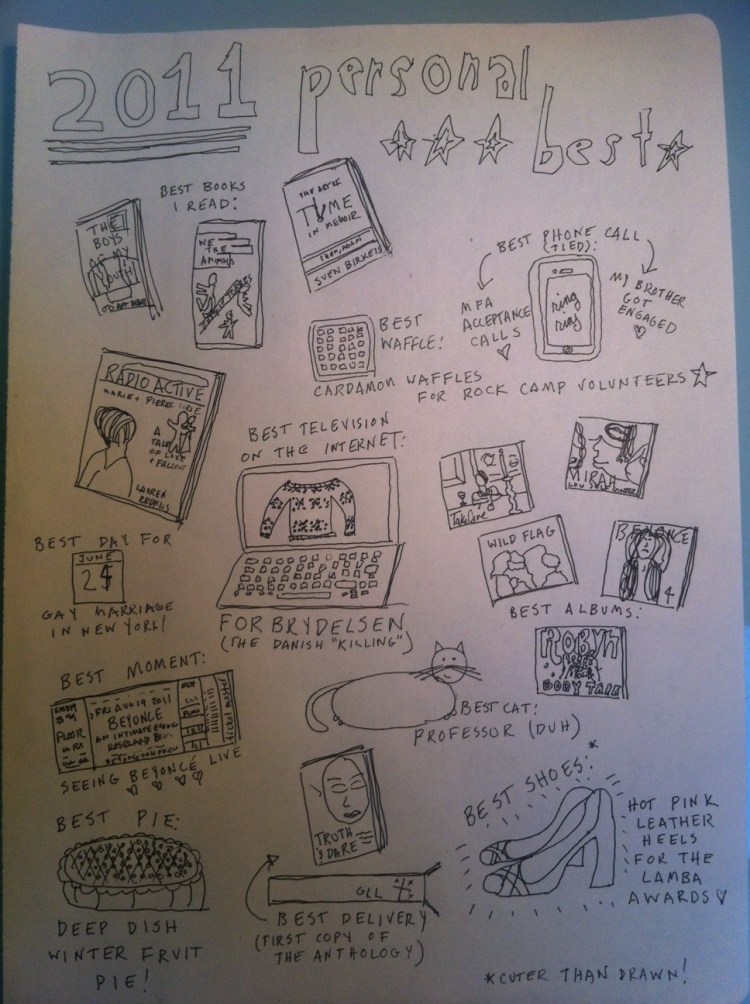 2011 personal
best
BEST BOOKS
I READ:
THE
BOYS
OF MY
YOUTH
WE
THE
ANIMALS
THE ART OF
TIME
IN MEMOIR
SVEN BIRKERTS
BEST PHONE CALL
(TIED):
MFA
ACCEPTANCE
CALLS
ring
ring
MY BROTHER
GOT
ENGAGED
BEST
WAFFLE:
CARDAMON WAFFLES
FOR ROCK CAMP VOLUNTEERS
RADIO ACTIVE
MARIE + PIERRE CURIE
A
TALE
OF LOVE
+ FALLOUT
LAUREN
REDNISS
BEST TELEVISION
ON THE INTERNET:
FORBRYDELSEN
(THE DANISH "KILLING")
BEST DAY FOR
JUNE
24
GAY MARRIAGE
IN NEW YORK!
Take Care
MIRAH
WILD FLAG
BEYONCE
4
BEST ALBUMS:
ROBYN
BODY TALK
BEST MOMENT:
FLOOR
FRI AUG 19 2011
BEYONCE
AN INTIMATE
ROSELAND
ticket
SEEING BEYONCÉ LIVE
BEST CAT:
PROFESSOR (DUH)
BEST PIE:
DEEP DISH
WINTER FRUIT
PIE!
TRUTH
& DARE
GLL
BEST DELIVERY
(FIRST COPY OF
THE ANTHOLOGY)
BEST SHOES:*
HOT PINK
LEATHER
HEELS
FOR THE
LAMBA
AWARDS
*CUTER THAN DRAWN!